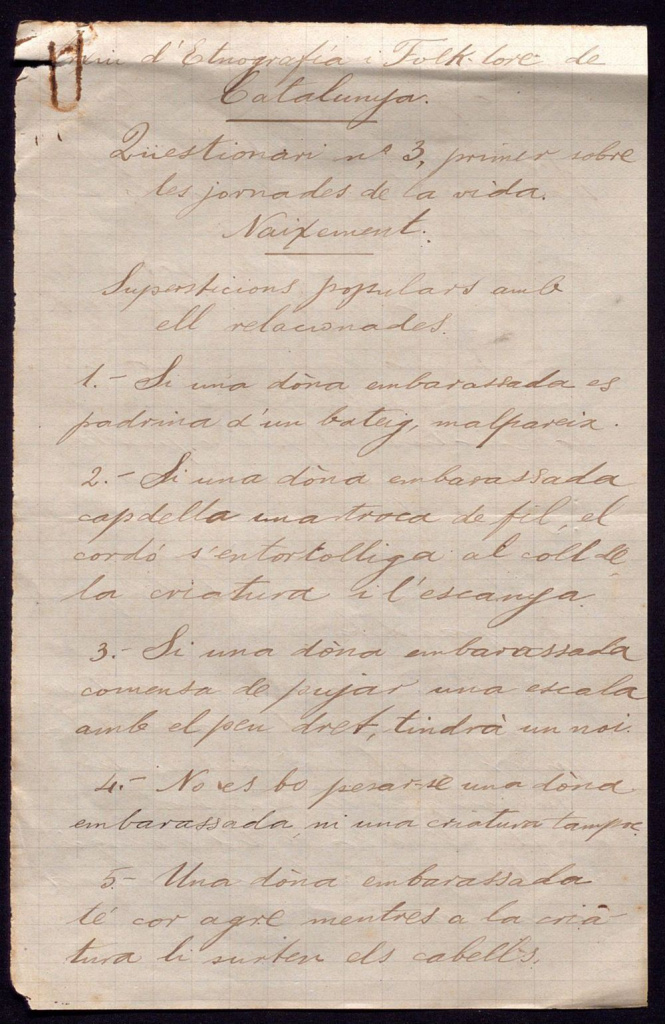 d'Etnografía i Folk-lore de
Catalunya.
Qüestionari nº 3, primer sobre
les jornades de la vida.
Naixement.
Supersticions populars amb
ell relacionades.
1.- Si una dòna embarassada es
padrina d'un bateig, malpareix.
2.- Si una dòna embarassada
capdella una troca de fil, el
cordó s'entortolliga al coll de
la criatura i l'escanya.
3.- Si una dòna embarassada
comensa de pujar una escala
amb el peu dret, tindrà un noi.
4.- No es bo pesar-se una dòna
embarassada, ni una criatura tampoc.
5.- Una dòna embarassada
té cor agre mentres a la cria-
tura li surten els cabells.